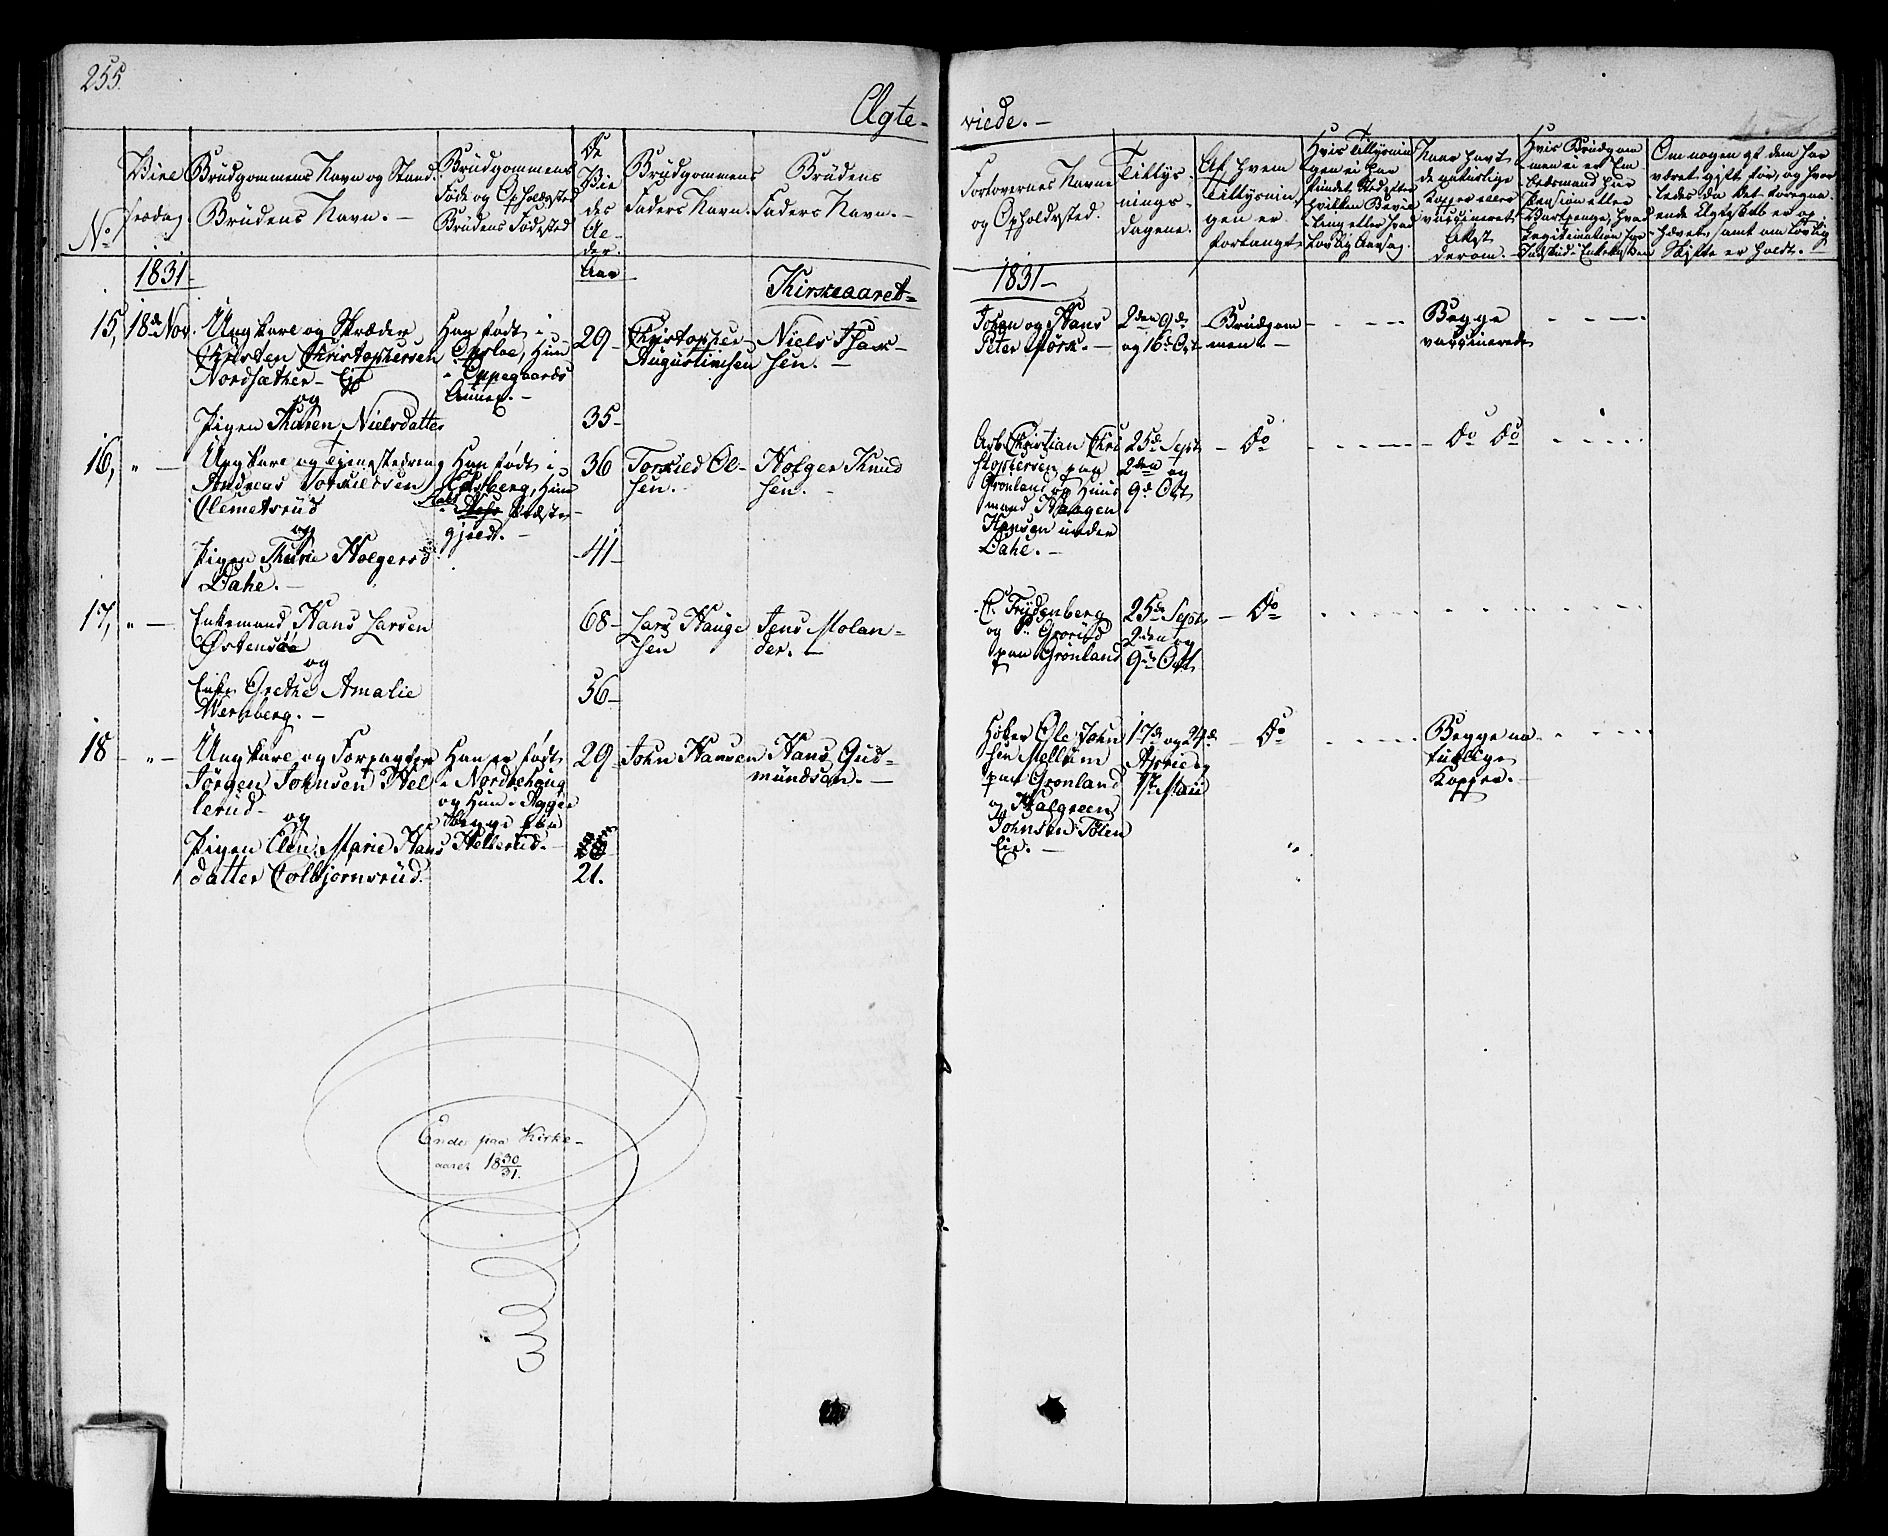 255.
Ægte-
viede. -
No
Vielsesdag
Brudgommens Navn og Stand.
Brudens Navn. -
Brudgommens
Føde og Opholdssted
Brudens Fødested
De
Vie
des
Al-
der.
Aar
Brudgommens
Faders Navn.
Brudens
Faders Navn. -
Forlovernes Navne
og Opholdssted.
Tillys-
nings-
dagene.
Af hvem
Tillysnin,
gen er
forlangt
Hvis Tillysnin
gen ei har
fundet Sted, efter
hvilken Bevil
ling eller hvad
lovlig Aarsag.
Naar havt
de naturlige
Kopper eller
vaccineret
Attest
derom. -
Hvis Brudgom
men ei er Em
bedsmand har
Pension eller
Vartpenge, hvad
Legitimation for
Indskud i Enkekassen
Om nogen af dem har
været gift før, og hvor
ledes da det foregaa-
ende Ægteskab er op
hævet, samt om lovlig
Skifte er holdt. -
1831-
Kirkeaaret-
1831-
15, 18de Nov. Ungkarl og Skræder
Karsten Christophersen
Nordsæther- Eie
og
Pigen Karen Nielsdatter
Han født i
Opsloe, Hun
i Oppegaards
Annex. -
29-
35-
Christopher
Augustinusen
Niels Isak-
sen. -
Johan og Hans
Peter Mørk. -
2den 9de
og 16de Oct.
Brudgom
men. -
Begge
vaccinerede
16, " - Ungkarl og Tjenestedreng
Andreas Torkildsen
Clemetsrud
og
Pigen Thurie Holgersd
Bahe. -
Han født i
Eidsberg, Hun
i Næs Præste
gjeld. -
36
-41-
Torkild Ol-
sen. -
Holger Knud
sen. -
Arb. Christian Chri
stophersen paa
Grønland og Huus
mand Haagen
Hansen under
Bahe. -
25de Sept.
2den og
9de Oct.
- Do
- Do Do
17, " - Enkemand Hans Larsen
Østensøe
og
Enke Grethe Amalie
Wernberg. -
68-
56-
Lars Hauge
sen
Jens Molan-
der. -
C. Frydenberg
og P. Grorud
paa Grønland
25de Sept.
2den og
9de Oct.
- Do
18 - " - Ungkarl og Forpagter
Jørgen Johnsen Hel
lerud- og
Pigen Elen Marie Hans
datter Tolbjørnsrud.
Han er født
i Norderhoug
og Hun i Agger
Begge paa
Hellerud. -
29-
21.
John Hansen
Hans Gus-
mundsen. -
Høker Ole John
sen Mellum
paa Grønland
og Halgreen
Johnsen Tøien
Eie. -
17de og 24de
April og
1ste Maii
- Do
Begge na
turlige
Kopper. -
Ende paa Kirke-
aaret 1830/31.